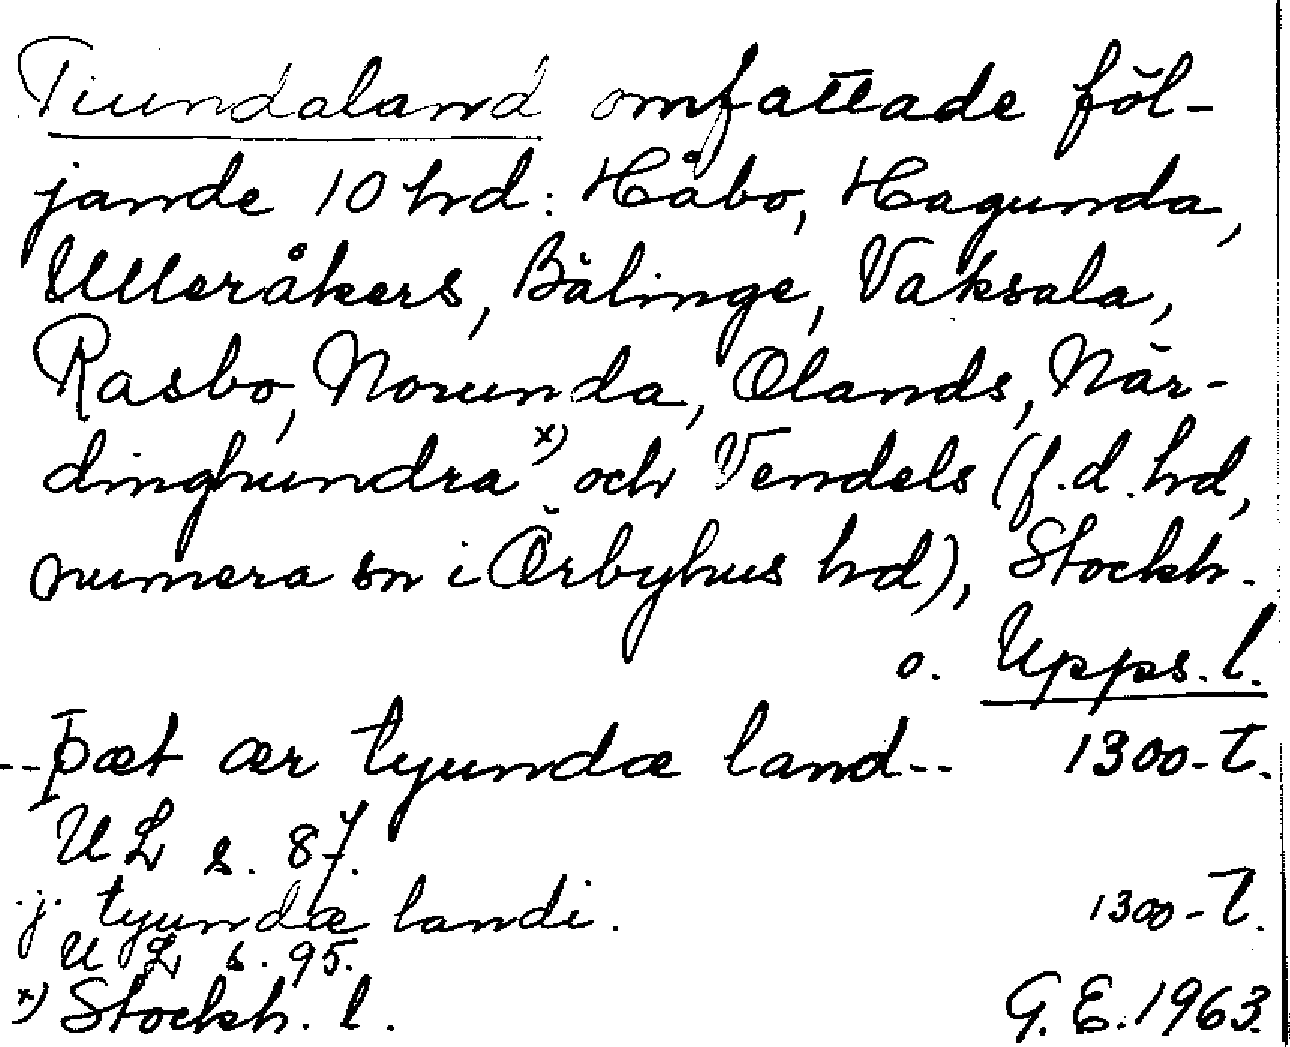 Tiundaland omfattade föl-
jande 10 hrd: Håbo, Hagunda,
Ulleråkers, Bälinge, Vaksala,
Rasbo, Norunda, Olands, När-
dinghundra x) och Vendels (f.d. hrd,
numera sn i Örbyhus hrd), Stockh.
o. Upps. l.
--þæt ær tyundæ land-- 1300-t.
UL s. 87.
j tyundæ landi. 1300-t.
UL s. 95.
x) Stockh. l. G. E. 1963.